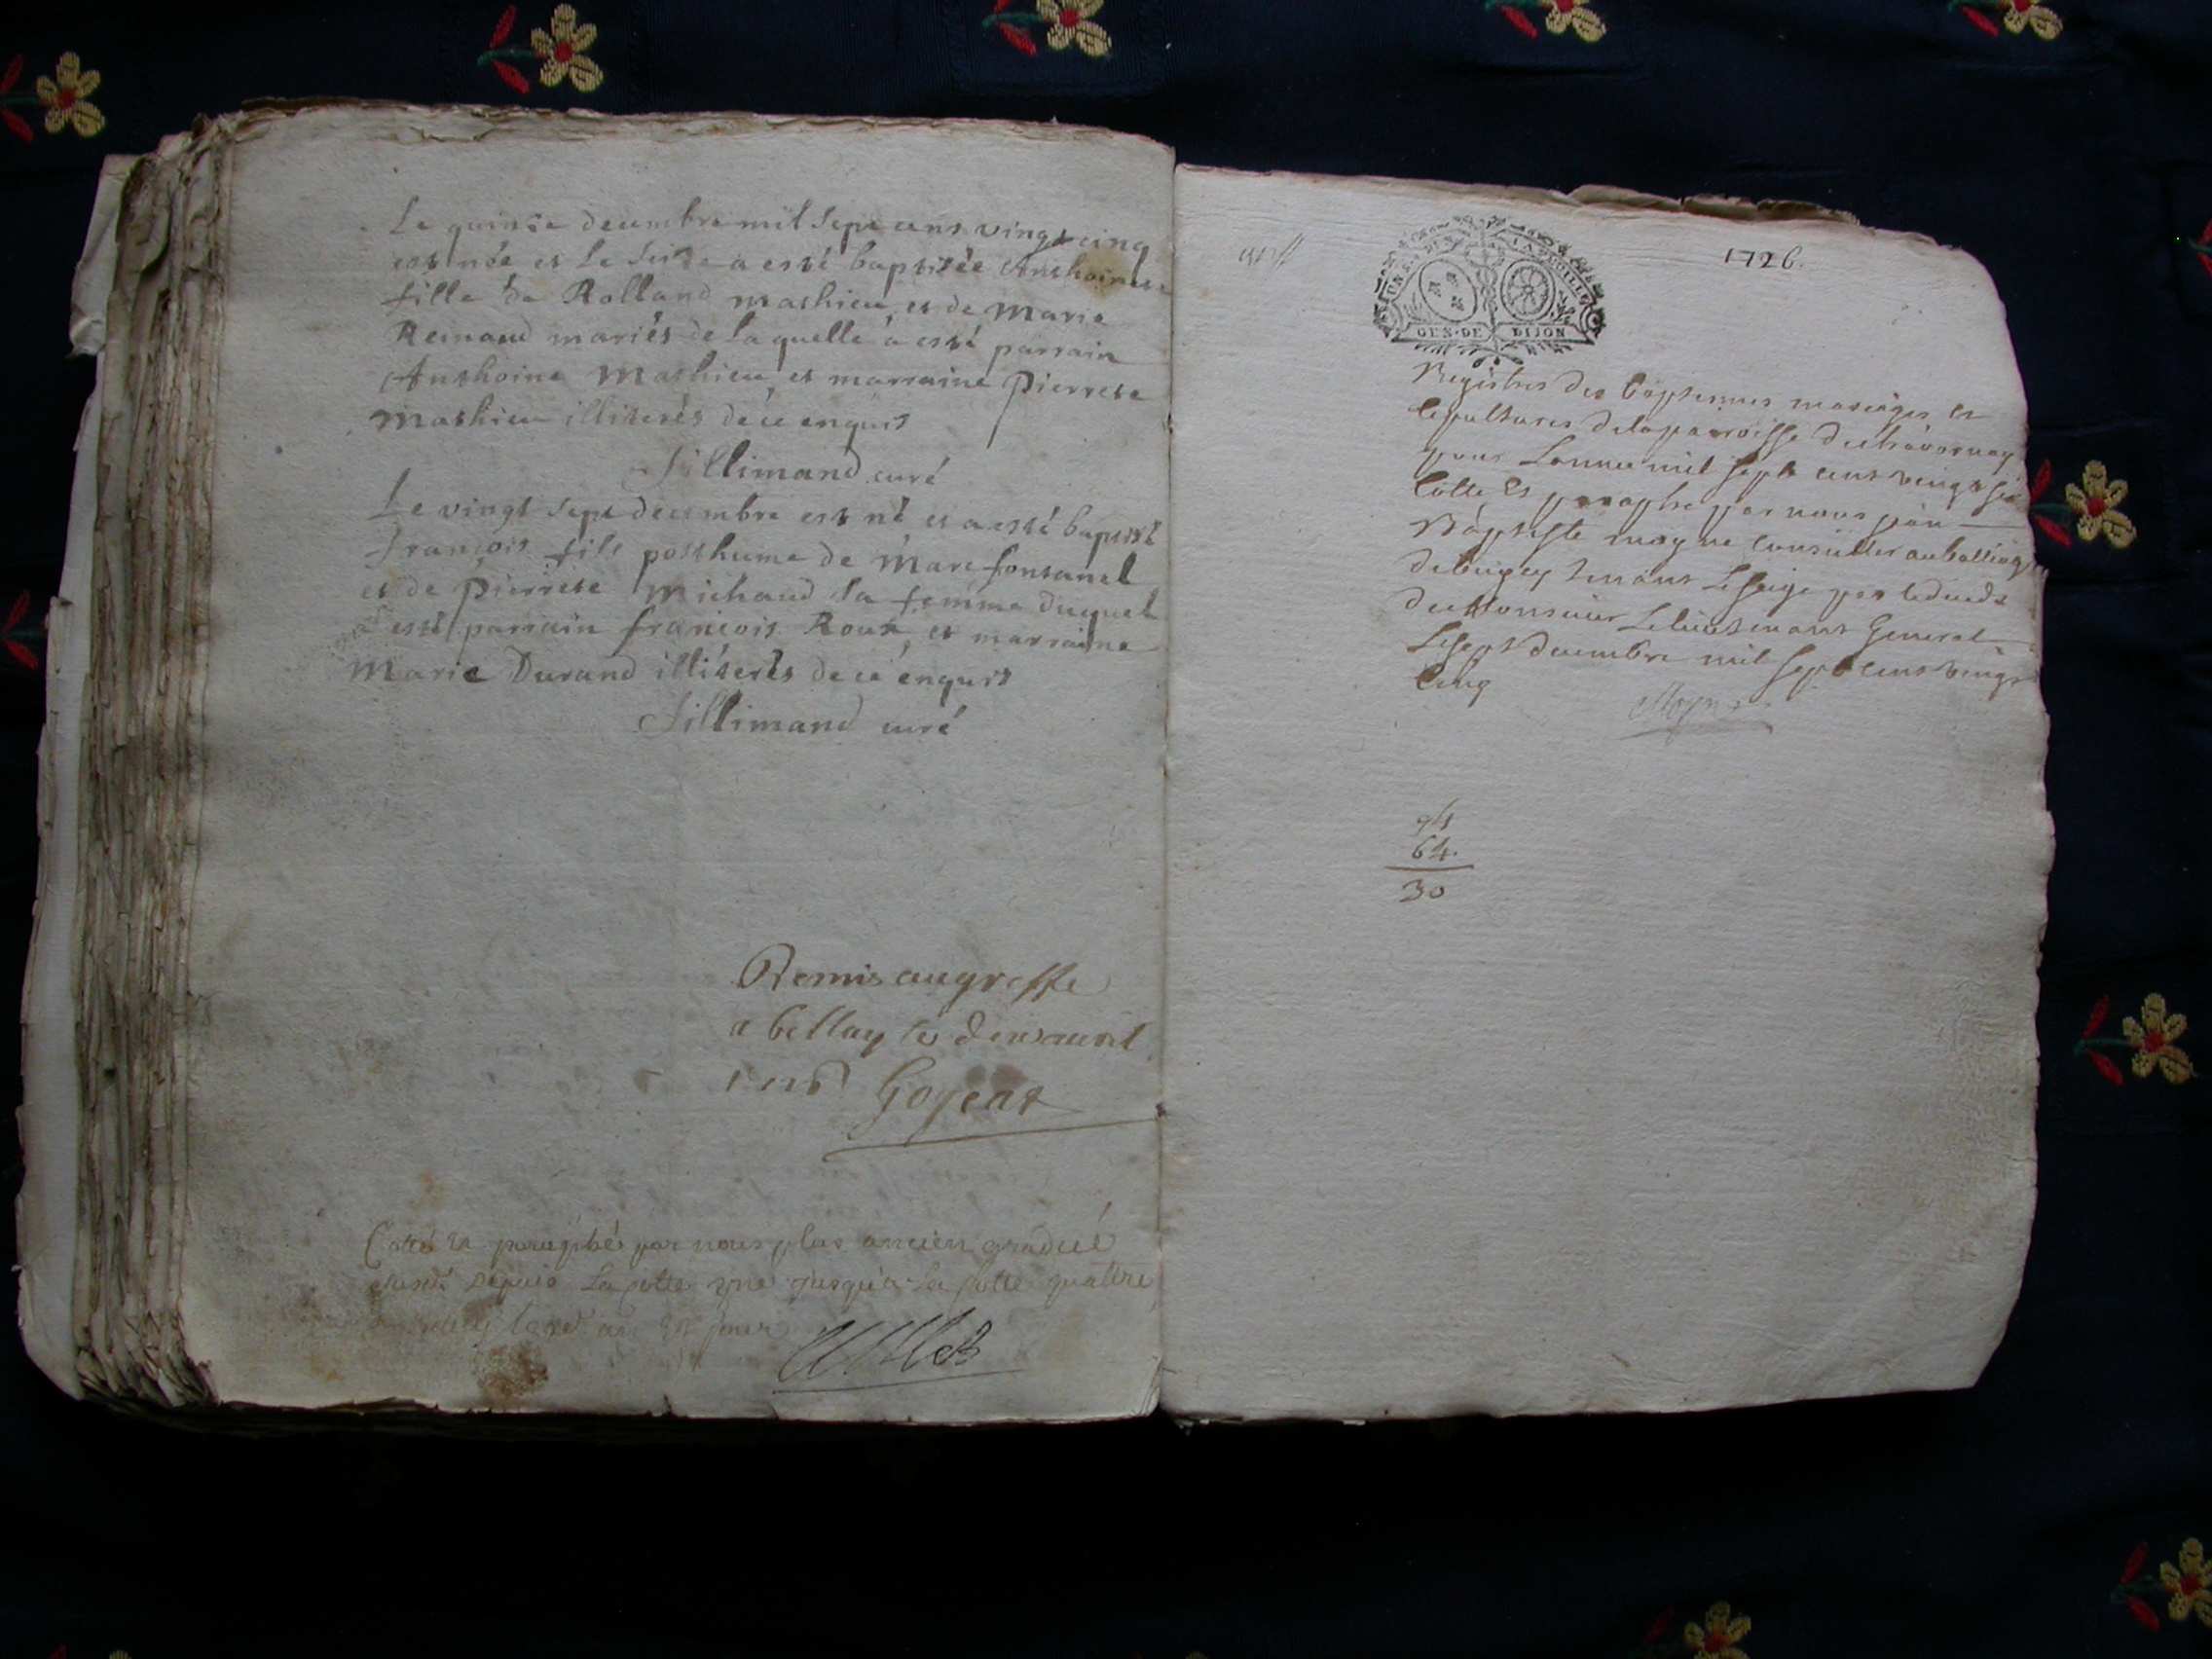 Le quinze decembre mil sept cens vingt cinq
est née et le seize a esté baptisée Anthoinete
fille de Rolland Mathieu, et de Marie
Remand mariés de laquelle a esté parrain
Anthoine Mathieu, et marraine Pierrete
Mathieu illiterés de ce enquis
Sillimand curé
Le vingt sept decembre est né et a esté baptisé
françois fils posthume de Marc fontanel
et de Pierrete Michaud sa femme duquel
a esté parrain françois Roux, et marraine
Marie Durand illiterés de ce enquis
Sillimand curé
Remis au greffe
a bellay le avril
1726 Goyent
Cotté et paraphé par nous plus ancien gradué
depuis la cotte une jusqu'a la cotte quatre
1726.
GEN·DE DIJON
Registres des baptemes mariages et
sepultures de la parroisse de chavornay
pour l'année mil sept cent vingt six
Cotté et paraphé par nous jean
Baptiste moyne conseiller au balliage
de bugey tenant le siege par le deceds
de Monsieur Le lieutenant General
Le sept decembre mil sept cent vingt
cinq
Moyne
94
64.
30